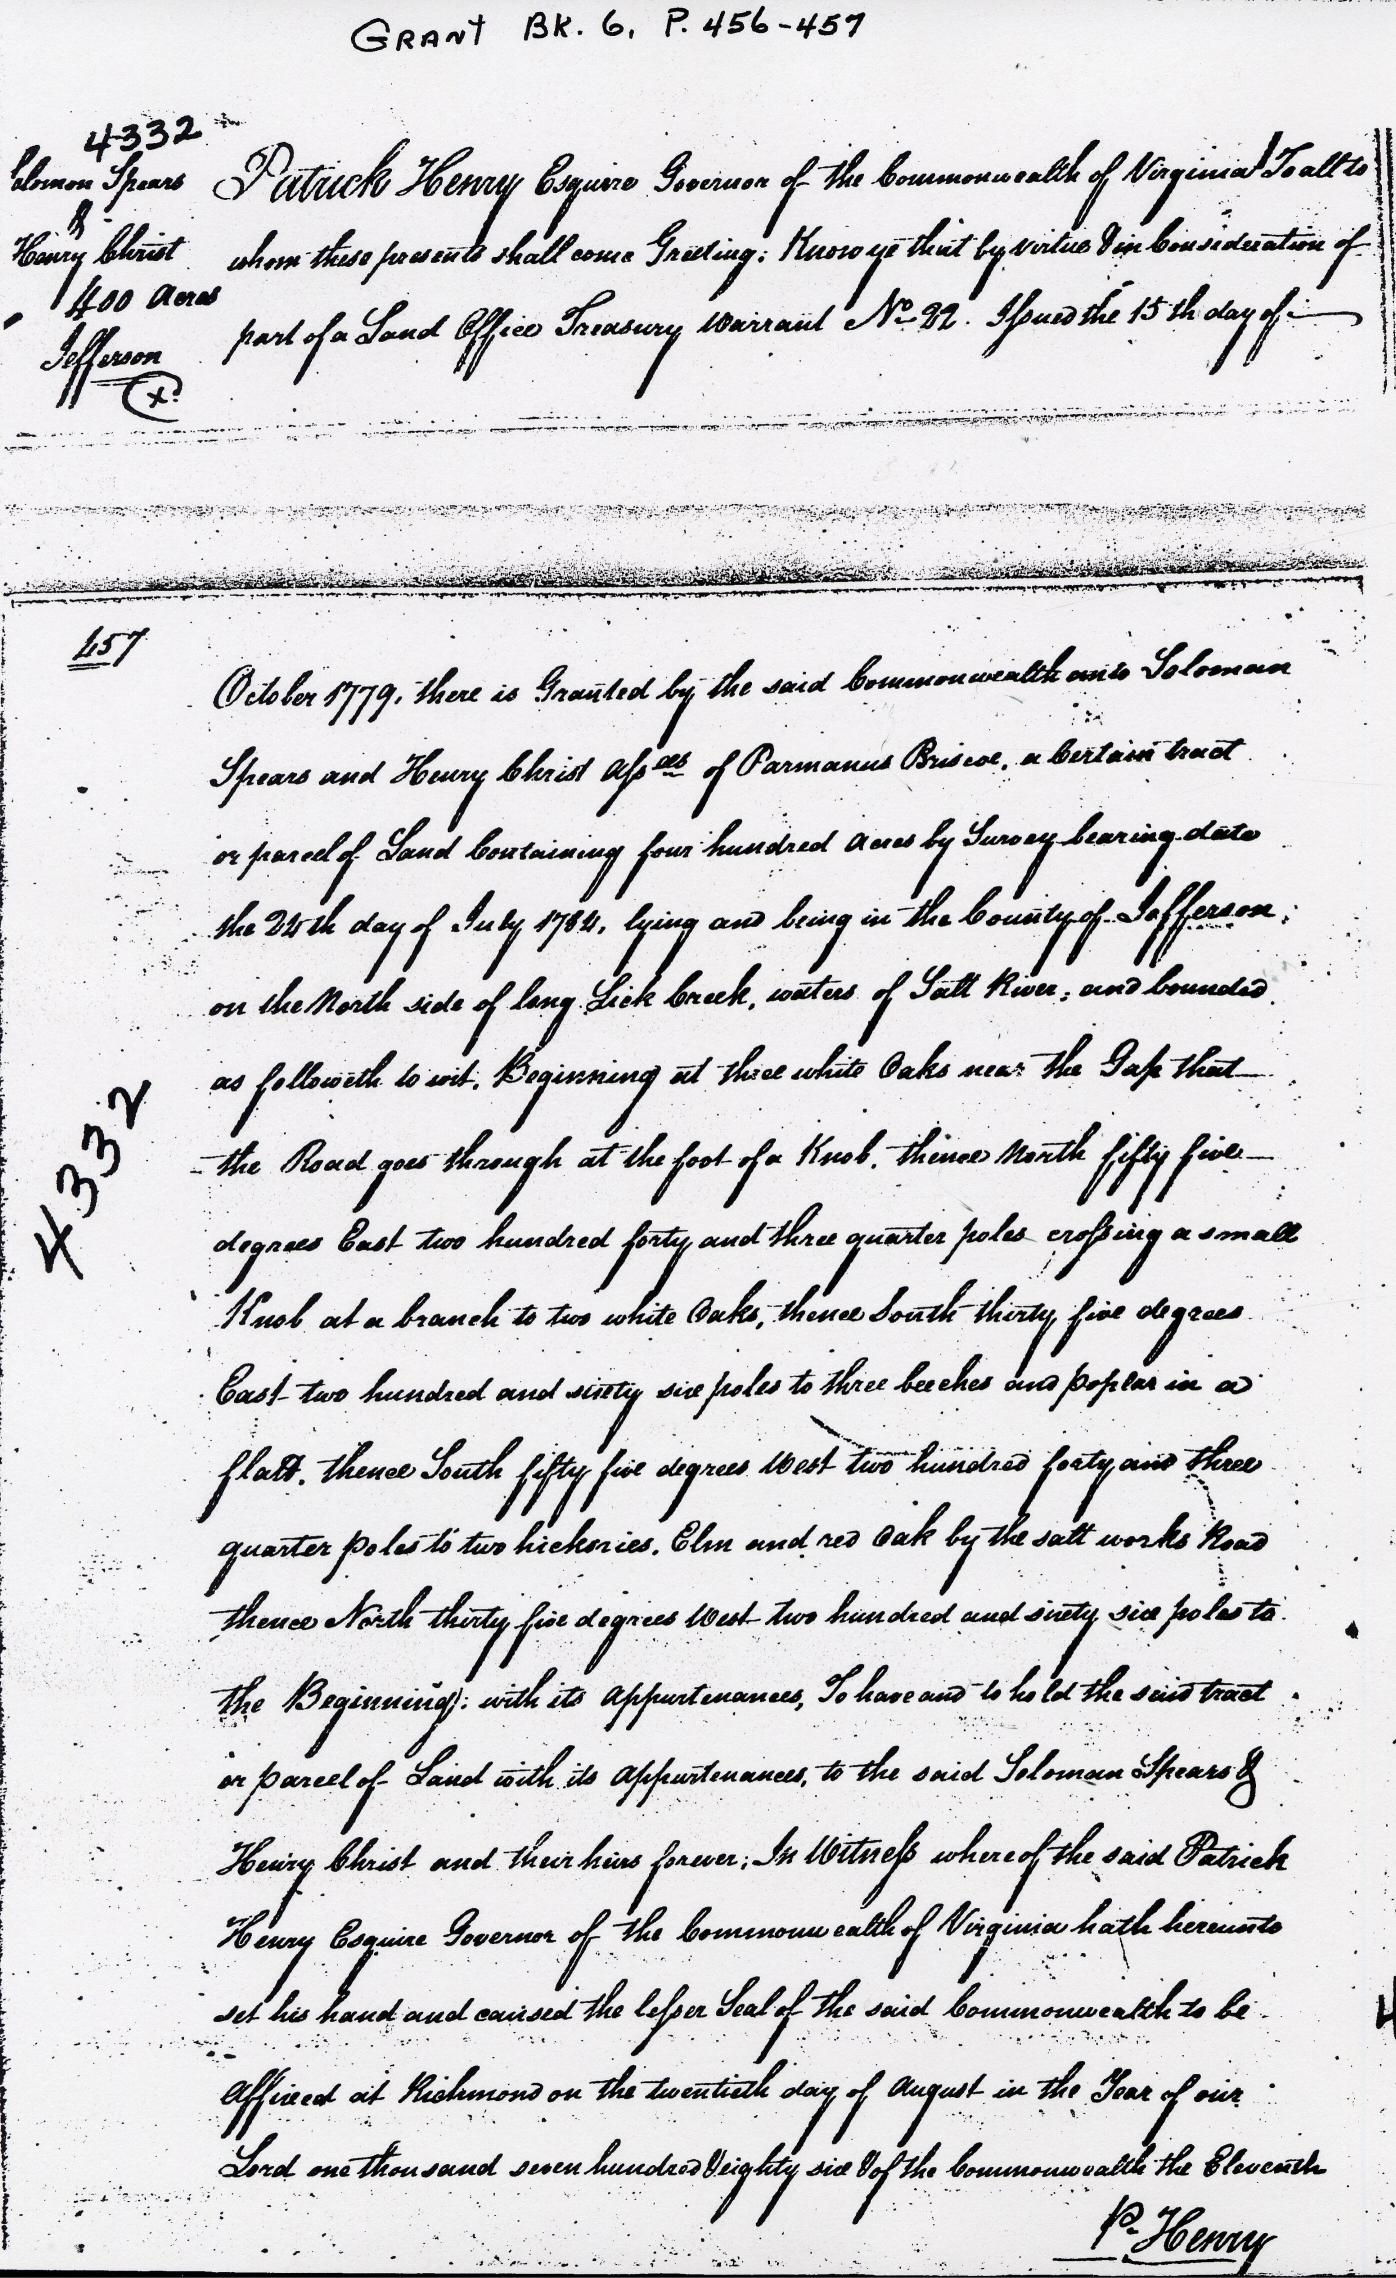 GRANT BK. 6, P. 456-457
4332
Solomon Spears
&
Henry Christ
400 Acres
Jefferson
X
Patrick Henry Esquire Governor of the Commonwealth of Virginia To all to
whom these presents shall come Greeting: Know ye that by virtue & in Consideration of
part of a Land Office Treasury Warrant No. 22. Issued the 15th day of
457
October 1779. there is Granted by the said Commonwealth unto Soloman
Spears and Henry Christ Assees of Parmanus Briscoe, a Certain tract
or parcel of Land Containing four hundred Acres by Survey bearing date
the 24th day of July 1784. lying and being in the County of Jefferson;
on the North side of long Lick Creek, waters of Salt River; and bounded
as followeth to wit. Beginning at three white Oaks near the Gap that
the Road goes through at the foot of a Knob. thence North fifty five
degrees East two hundred forty and three quarter poles crossing a small
Knob at a branch to two white Oaks, thence South thirty five degrees
East two hundred and sixty six poles to three beeches and poplar in a
flatt. thence South fifty five degrees West two hundred forty and three
quarter poles to two hickories. Elm and red Oak by the salt works Road
thence North thirty five degrees West two hundred and sixty six poles to
the Beginning: with its Appurtenances, To have and to hold the said tract
or parcel of Land with its Appurtenances, to the said Soloman Spears &
Henry Christ and their heirs forever; In Witness whereof the said Patrick
Henry Esquire Governor of the Commonwealth of Virginia hath hereunto
set his hand and caused the lesser Seal of the said Commonwealth to be
Affixed at Richmond on the twentieth day of August in the Year of our
Lord one thousand seven hundred & eighty six & of the Commonwealth the Eleventh
P. Henry
4332
4